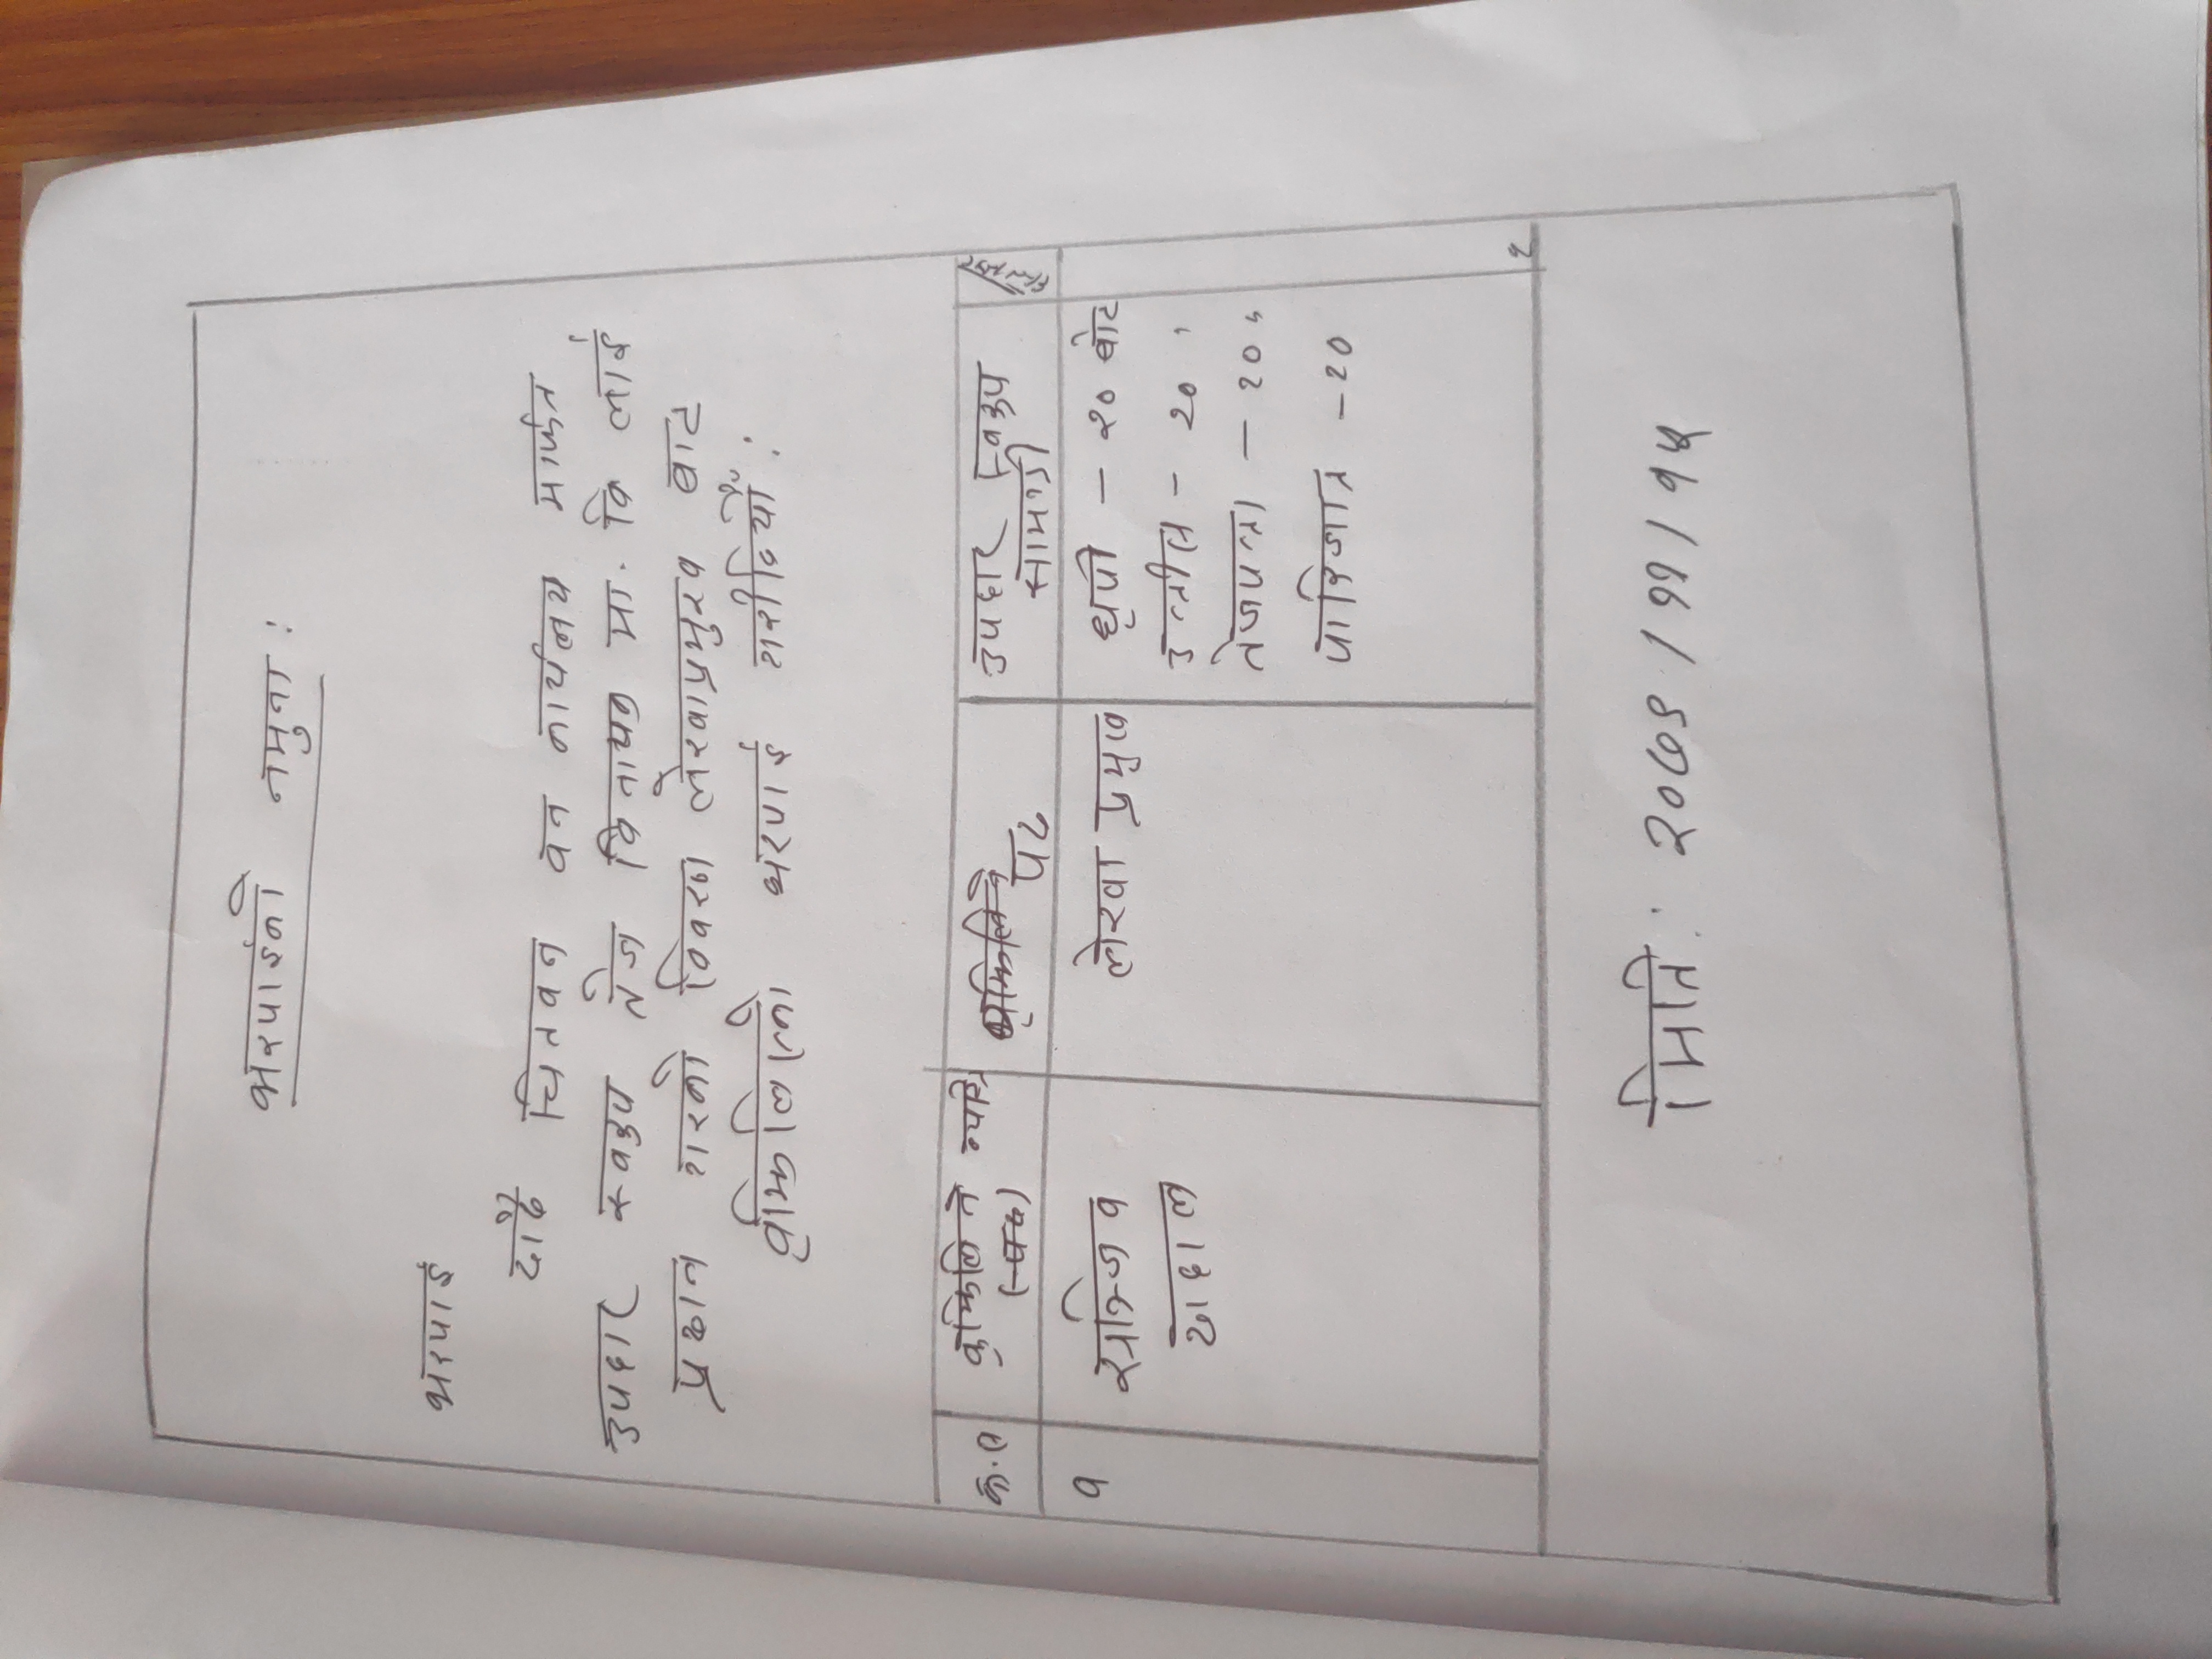 भरपाईको नमुना :
भरपाई
चितवन वन कार्यलय मार्फत
उपहार स्वरुप तेज विनायक मा. वि लाई
प्रदान गरेको विवरण लेखाप्रमुख बाट
बुझिलिएको भरपाई गरीदियौँ :
क्र.स
बुझिलिने व्यक्ति
बुझिलिने
पद
उपहार स्वरुप
सामग्री
१
सन्जिव
दाहाल
लेखा प्रमुख
धुपी - २० बोट
उत्तीस - २० "
तेजपत्ता - २० "
पारिजात - २०
मिति : २०७९ / ११ / १५